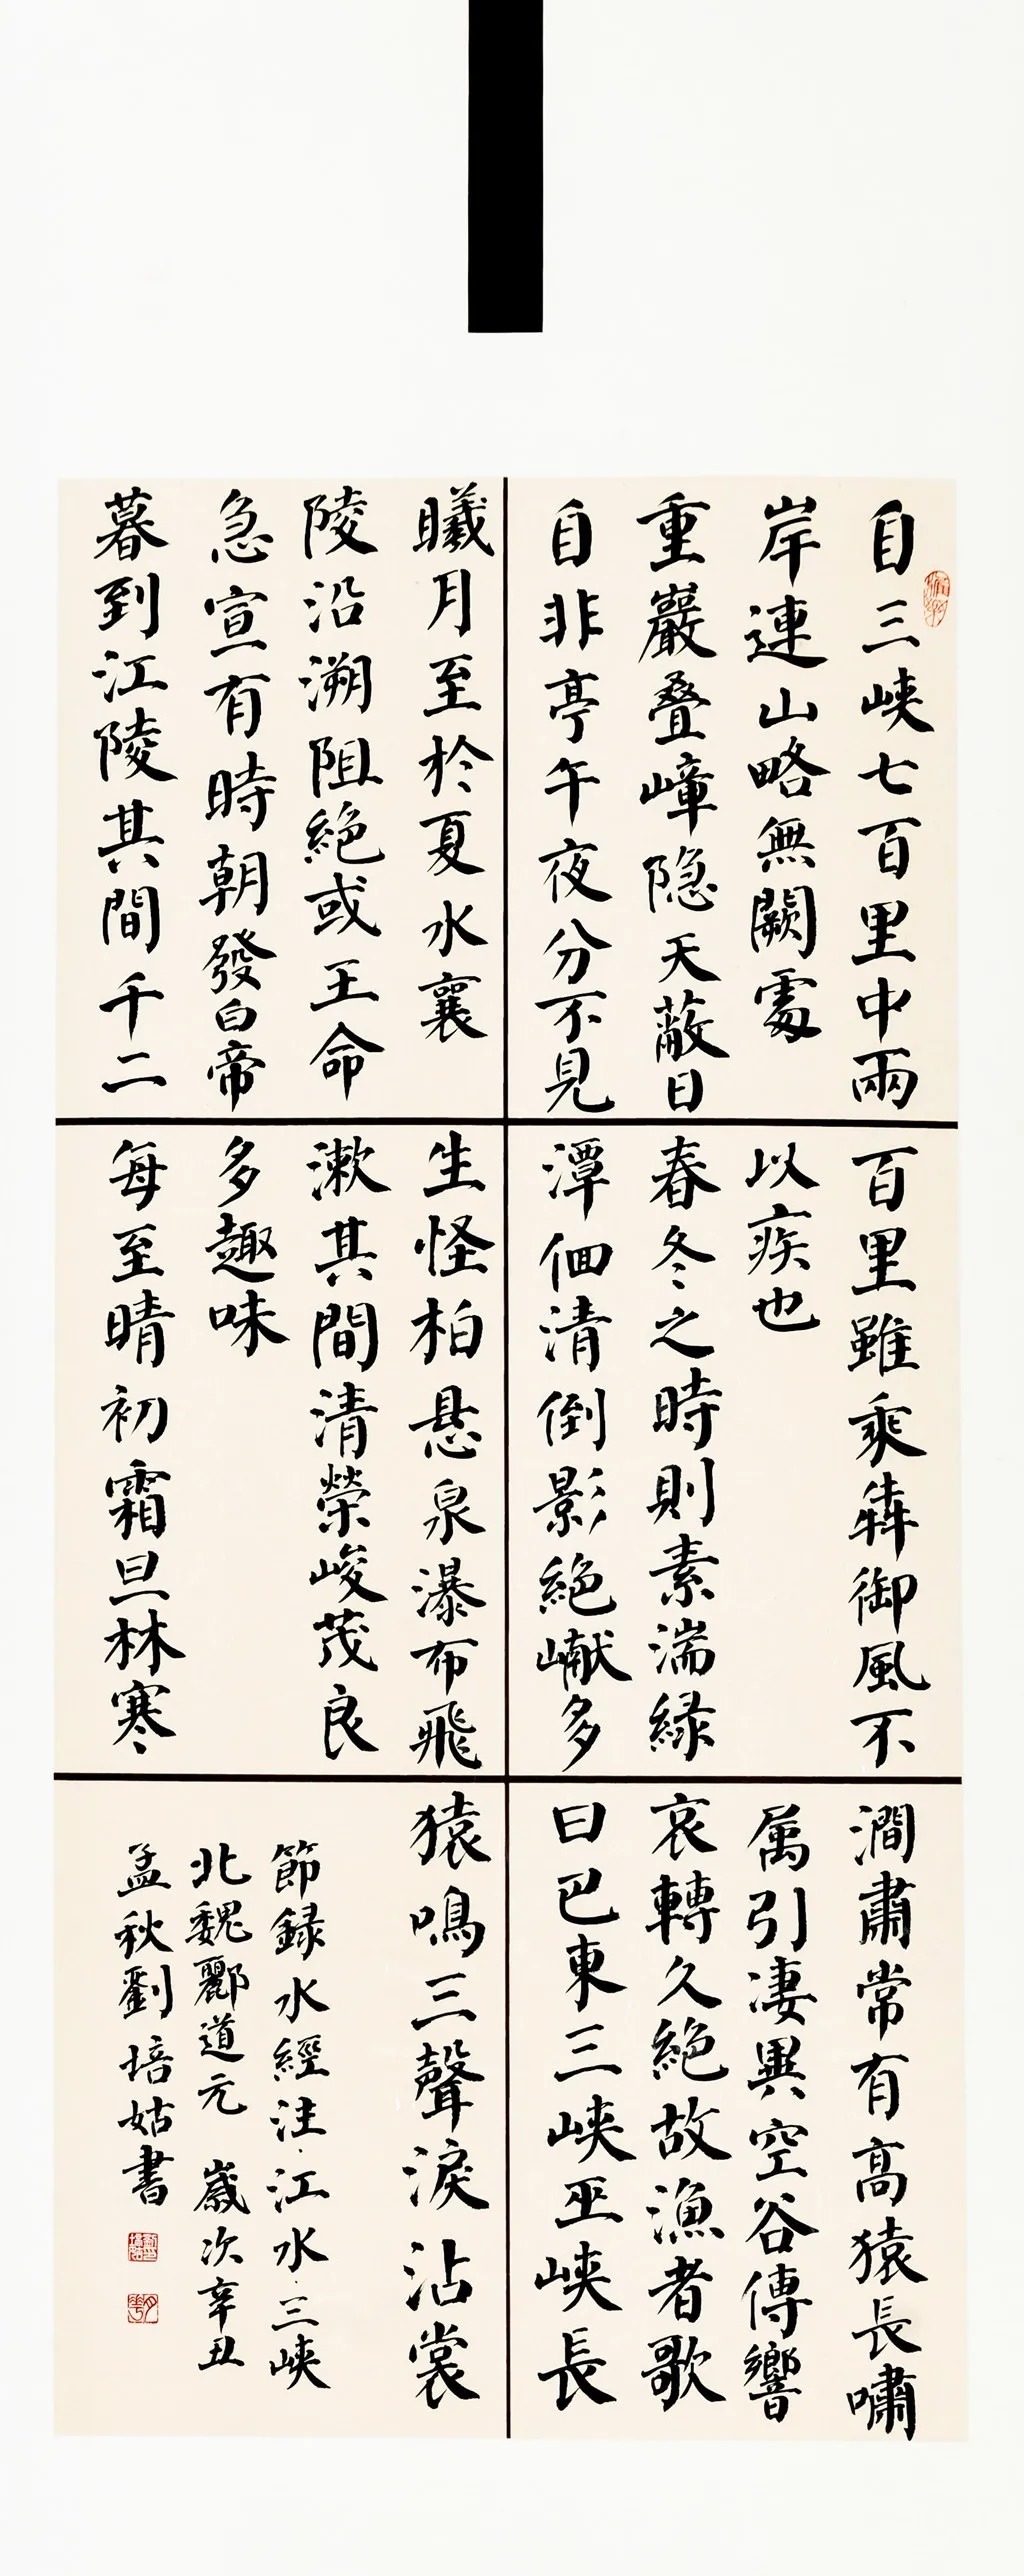 自三峽七百里中兩
岸連山略無闕處
重巖叠嶂隐天蔽日
自非亭午夜分不見
曦月至於夏水襄
陵沿溯阻絕或王命
急宣有時朝發白帝
暮到江陵其間千二
百里雖乘犇御風不
以疾也
春冬之時則素湍緑
潭回清倒影絕巘多
生怪柏悬泉瀑布飛
漱其間清榮峻茂良
多趣味
每至晴初霜旦林寒
澗肅常有高猿長嘯
属引凄異空谷傳響
哀轉久絕故漁者歌
曰巴東三峽巫峽長
猿鳴三聲淚沾裳
節録水經注·江水·三峽
北魏酈道元 歲次辛丑
孟秋劉培姑書